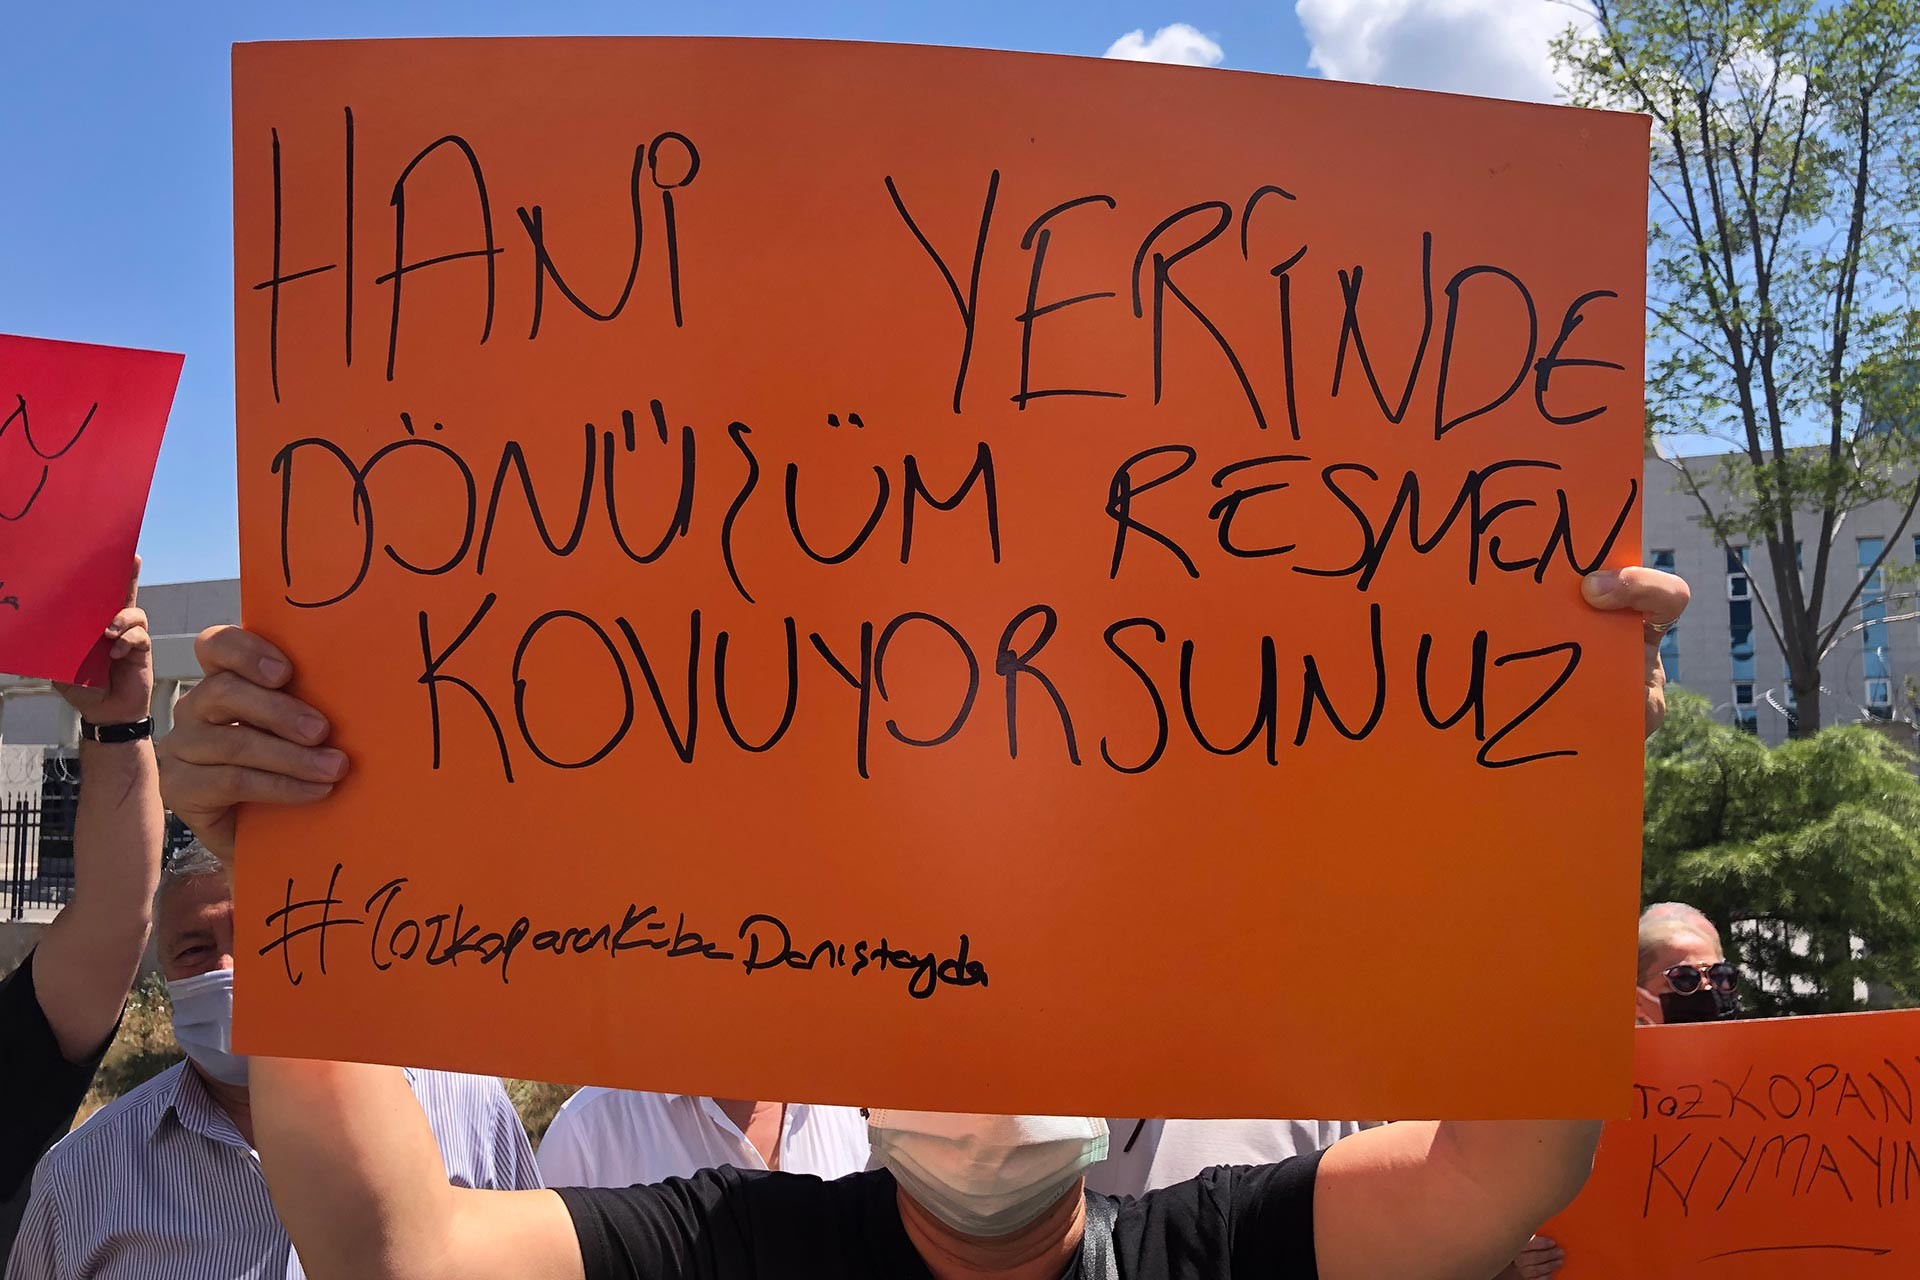 HANİ YERİNDE
DÖNÜŞÜM RESMEN
KOVUYORSUNUZ
#TozkoparanKübaDanıştayda
TOZKOPAN
KIYMAYIN